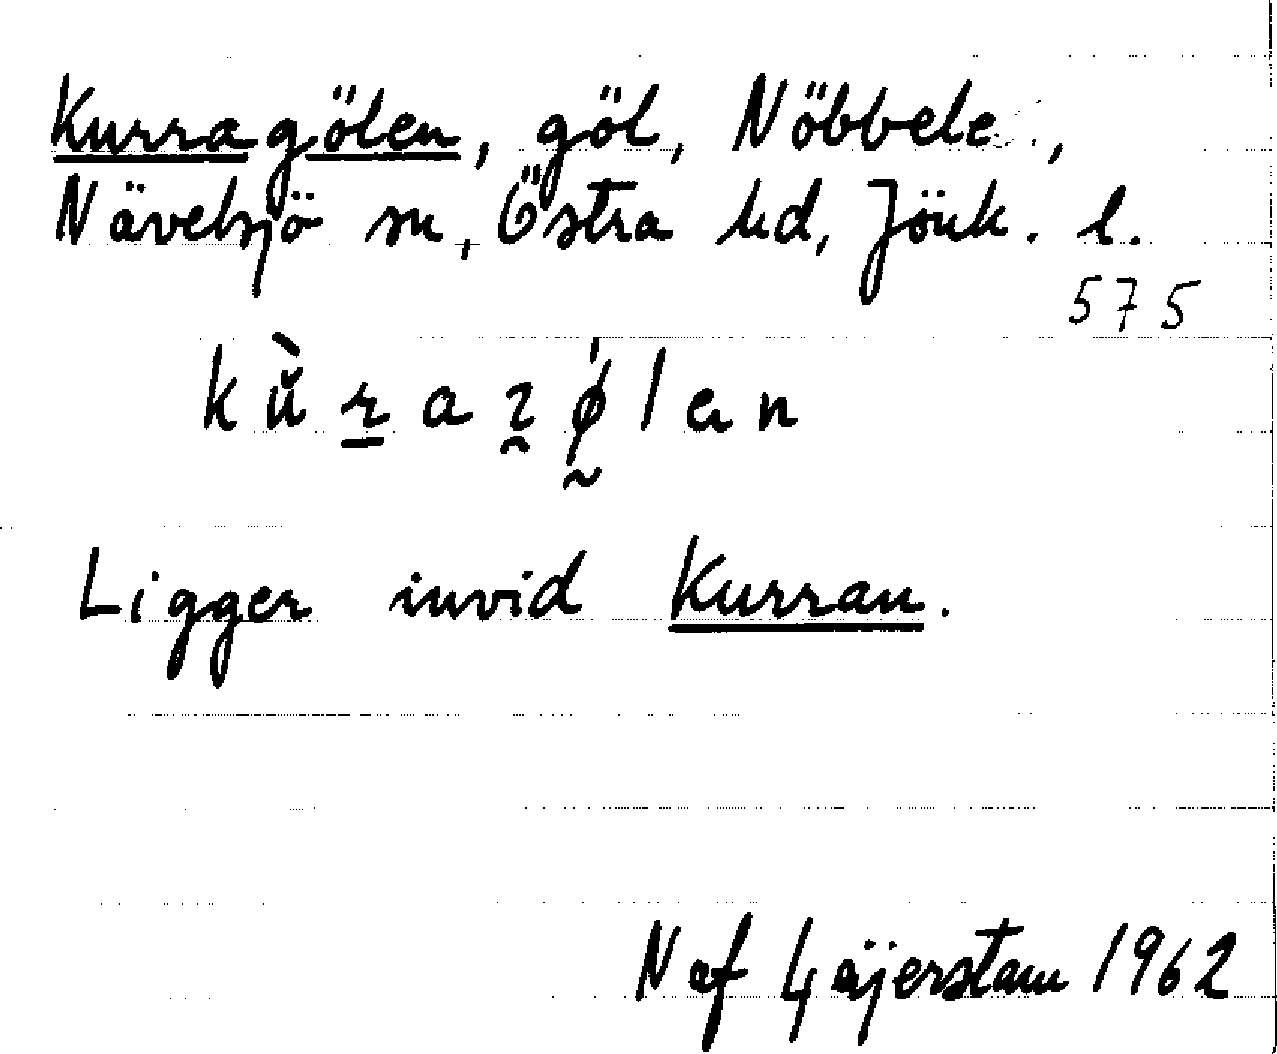 Kurragölen, göl, Nöbbele,
Nävelsjö sn, Östra hd, Jönk. l.
575
Ligger invid Kurran.
N af Gäijerstam 1962